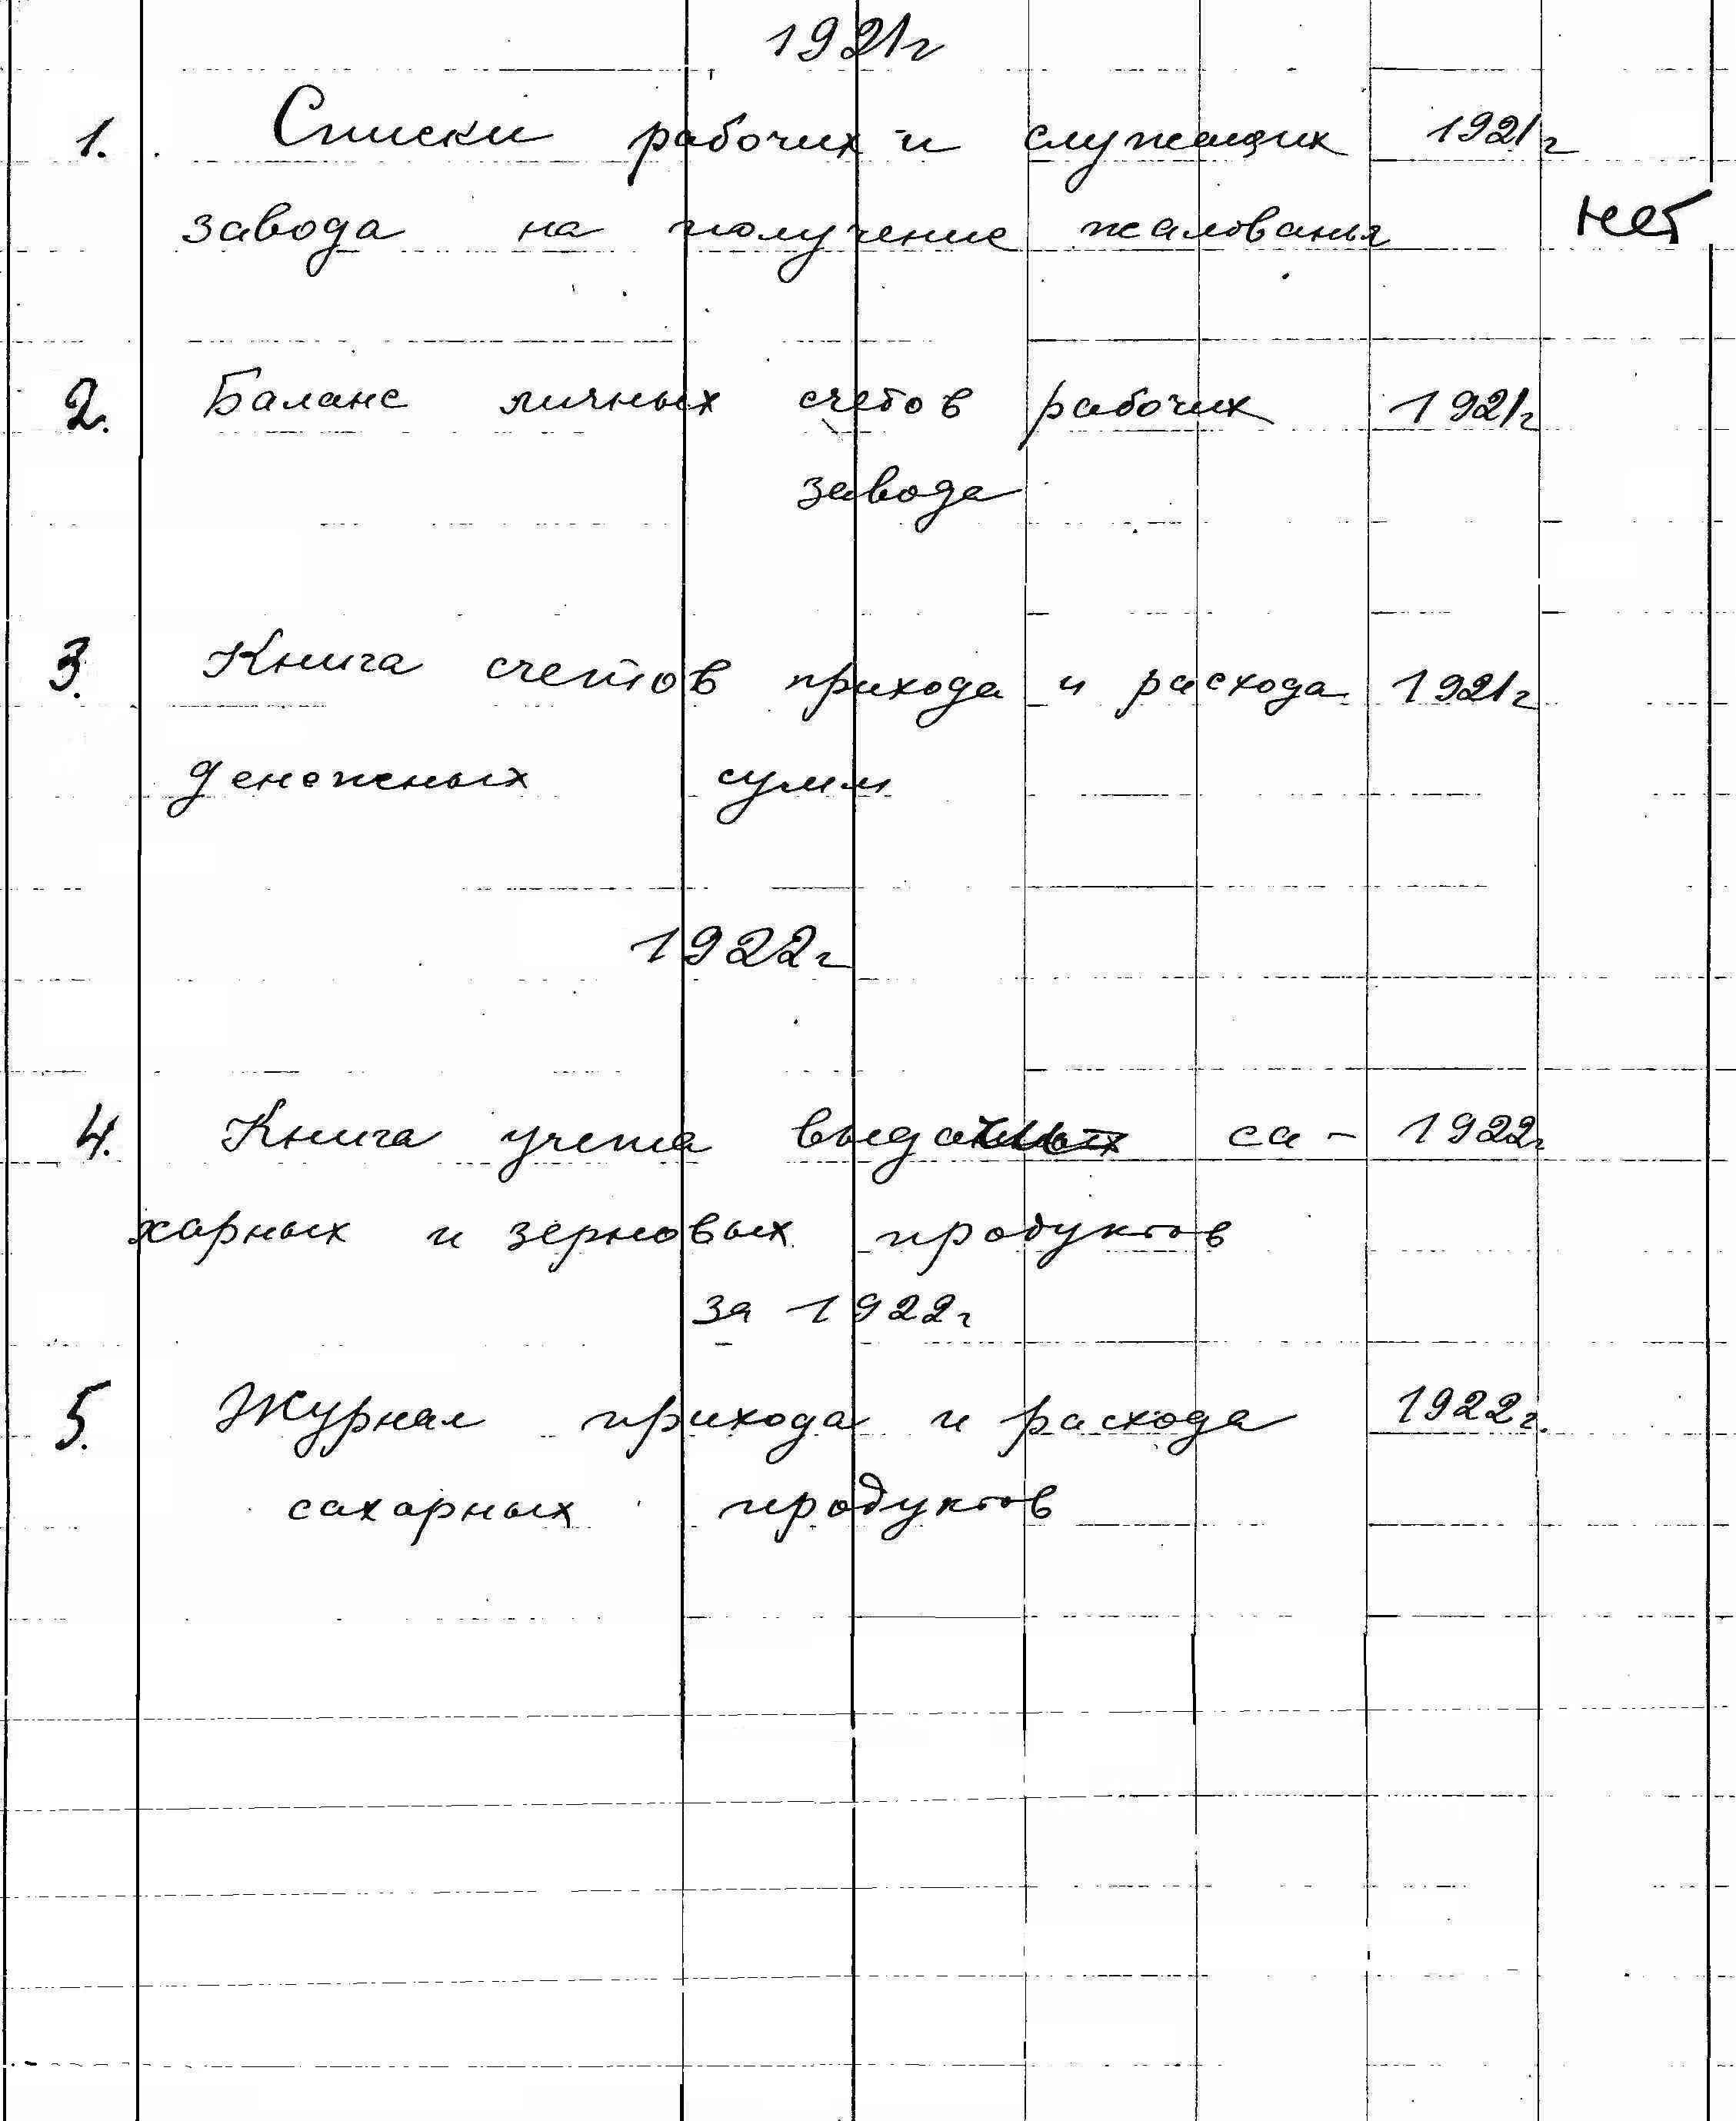 1921г
1. Списки рабочих и служащих 1921г
завода на получение жалованья нет
2. Баланс личных счетов рабочих 1921г
завода
3. Книга счетов прихода и расхода 1921г
денежных сумм
1922г
4. Книга учета выданных са- 1922г
харных и зерновых продуктов
за 1922г
5. Журнал прихода и расхода 1922г.
сахарных продуктов